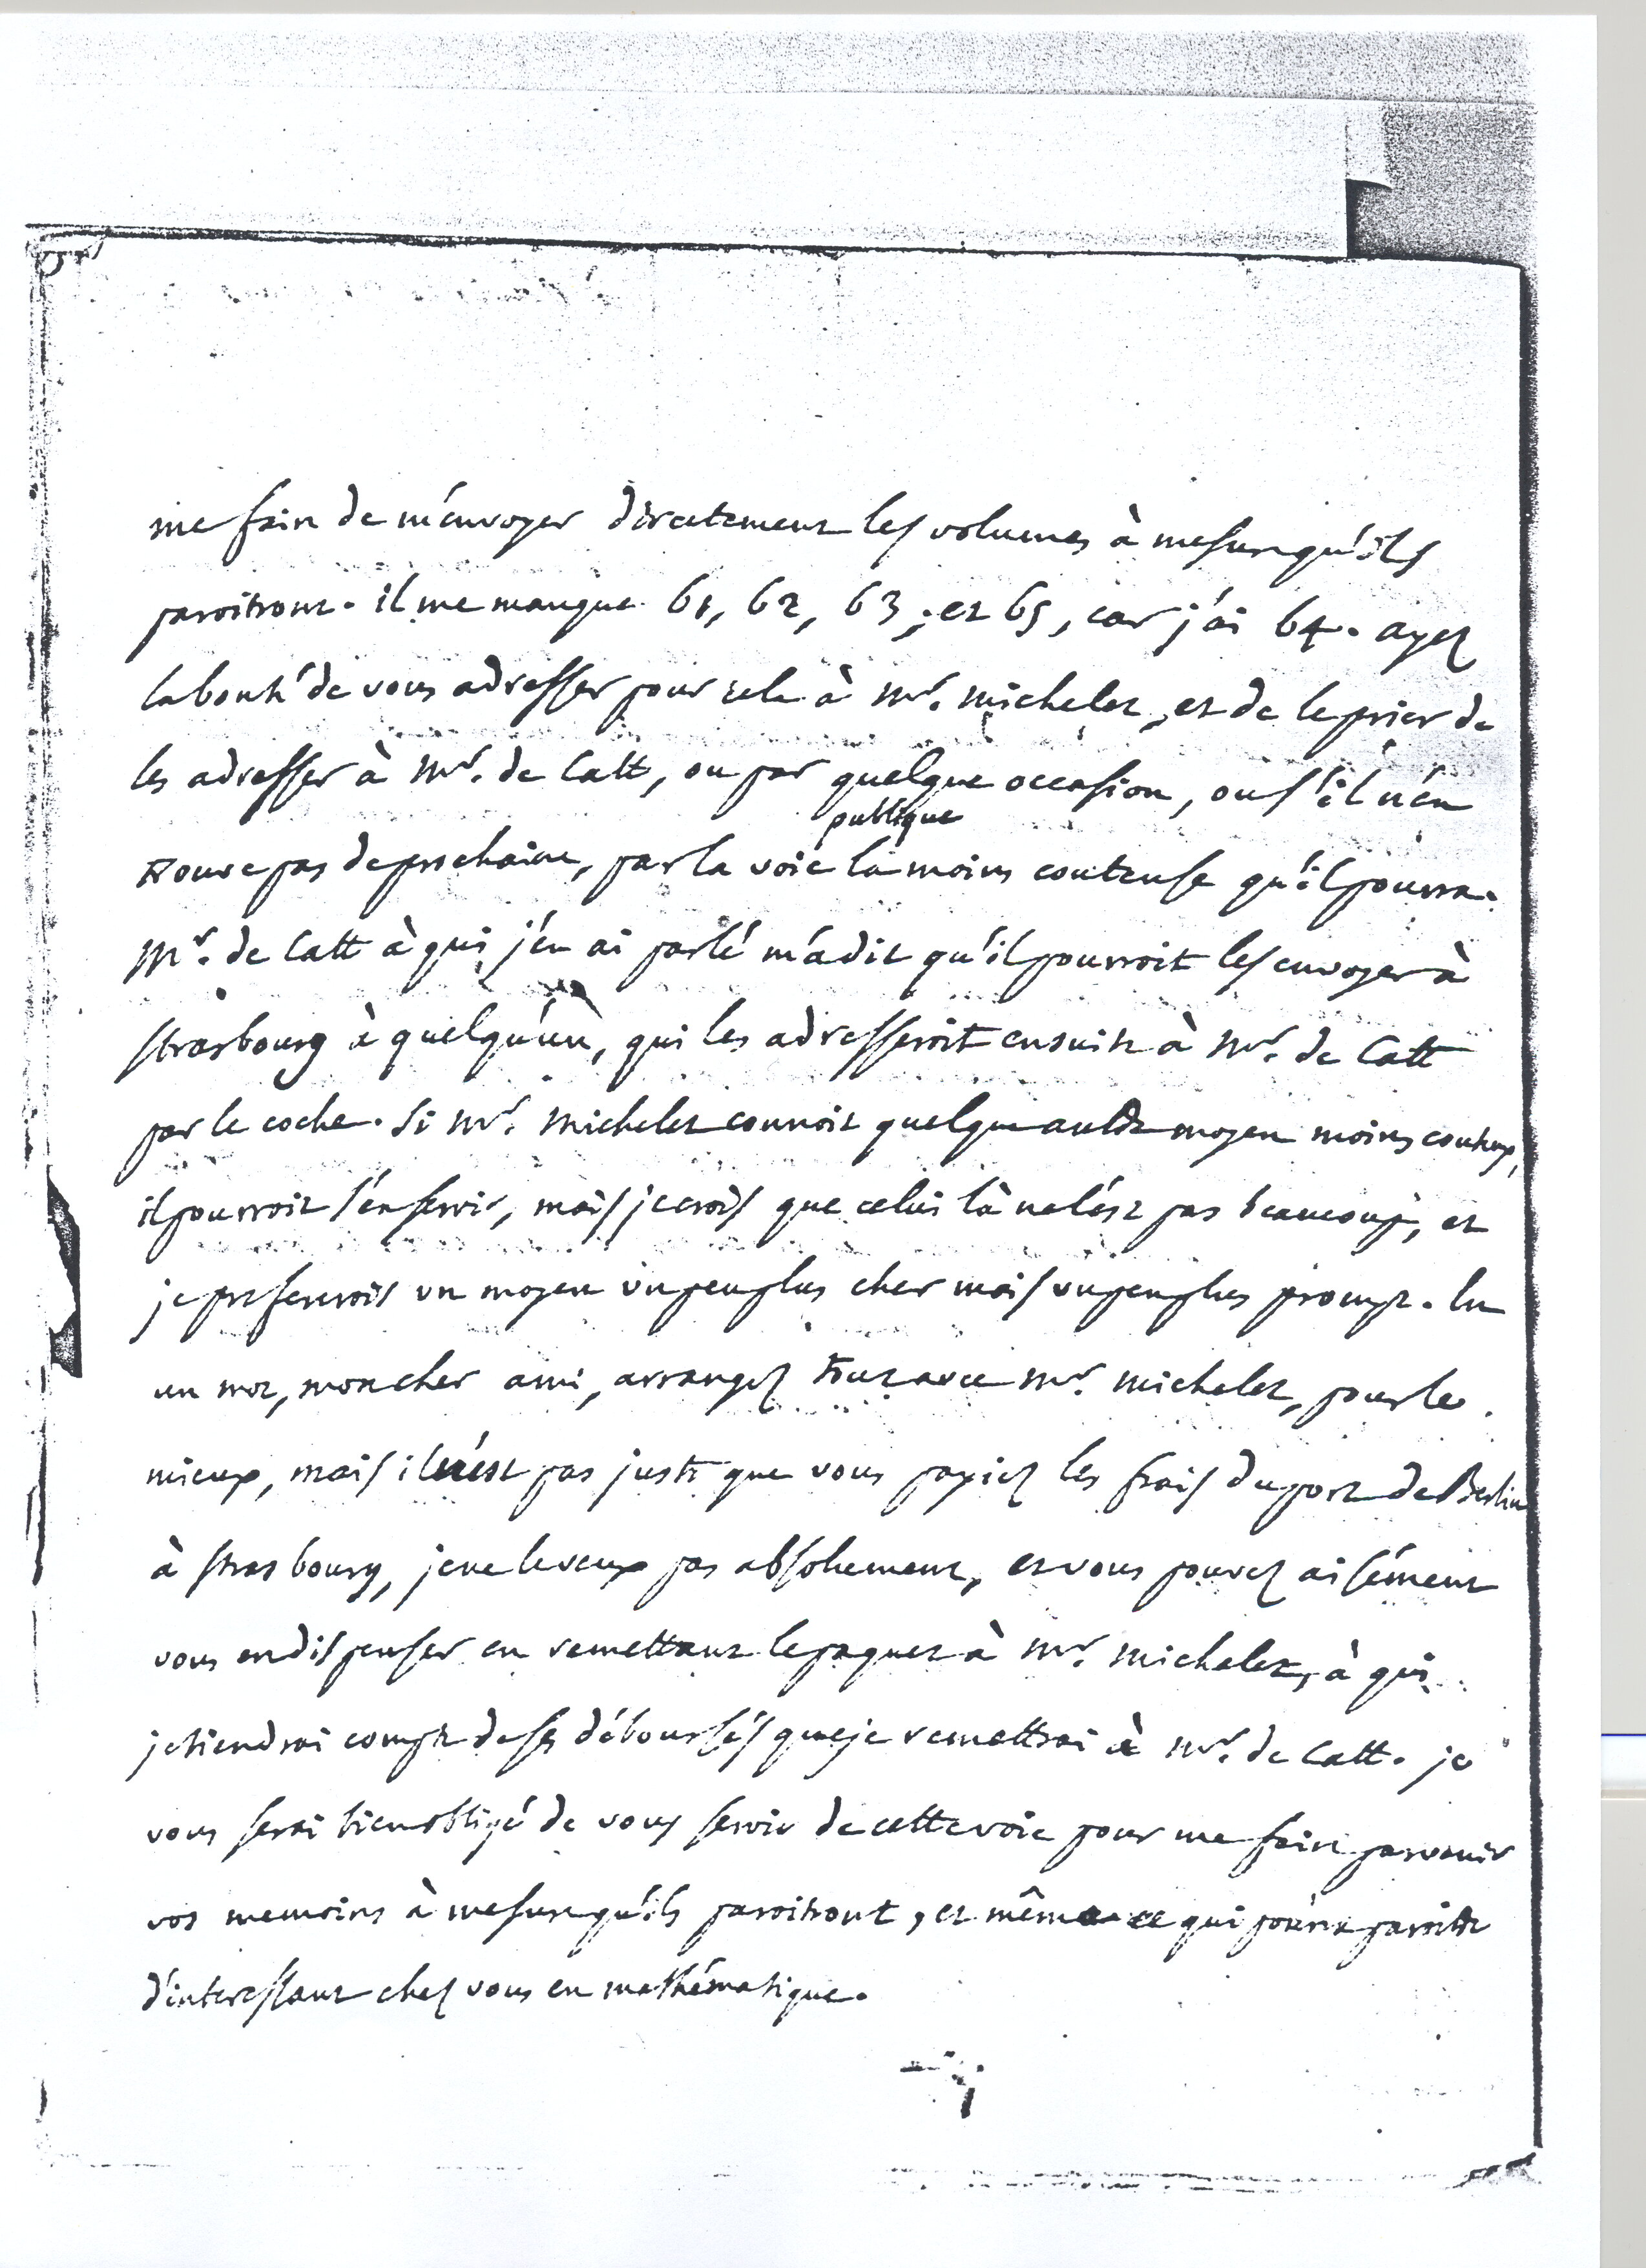 me faire de m'envoyer directement les volumes à mesure qu'ils
paroitront. il me manque 61, 62, 63, et 65, car j'ai 64. ayez
la bonté de vous adresser pour cela à Mr. Michelet, et de le prier de
les adresser à Mr. de Catt, ou par quelque occasion, ou s'il n'en
publique
trouve pas de prochaine, par la voie la moins couteuse qu'il pourra.
Mr. de Catt à qui j'en ai parlé m'a dit qu'il pourroit les envoyer à
Strasbourg à quelqu'un, qui les adresseroit ensuite à Mr. de Catt
par le coche. Si Mr. Michelet connoit quelque autre moyen moins couteux,
il pourroit s'en servir, mais je crois que celui là ne l'est pas beaucoup, et
je prefererois un moyen un peu plus cher mais un peu plus prompt. En
un mot, mon cher ami, arrangez tout avec Mr. Michelet, pour le
mieux, mais il n'est pas juste que vous payiez les frais du port de Berlin
à Strasbourg, je ne le veux pas absolument, et vous pouvez aisément
vous en dispenser en remettant le paquet à Mr. Michelet, à qui
je tiendrai compte de ses déboursés que je remettrai à Mr. de Catt. je
vous serai bien obligé de vous servir de cette voie pour me faire parvenir
vos memoires à mesure qu'ils paroitront, et même ce qui pourra paroitre
d'interessant chez vous en mathématique.